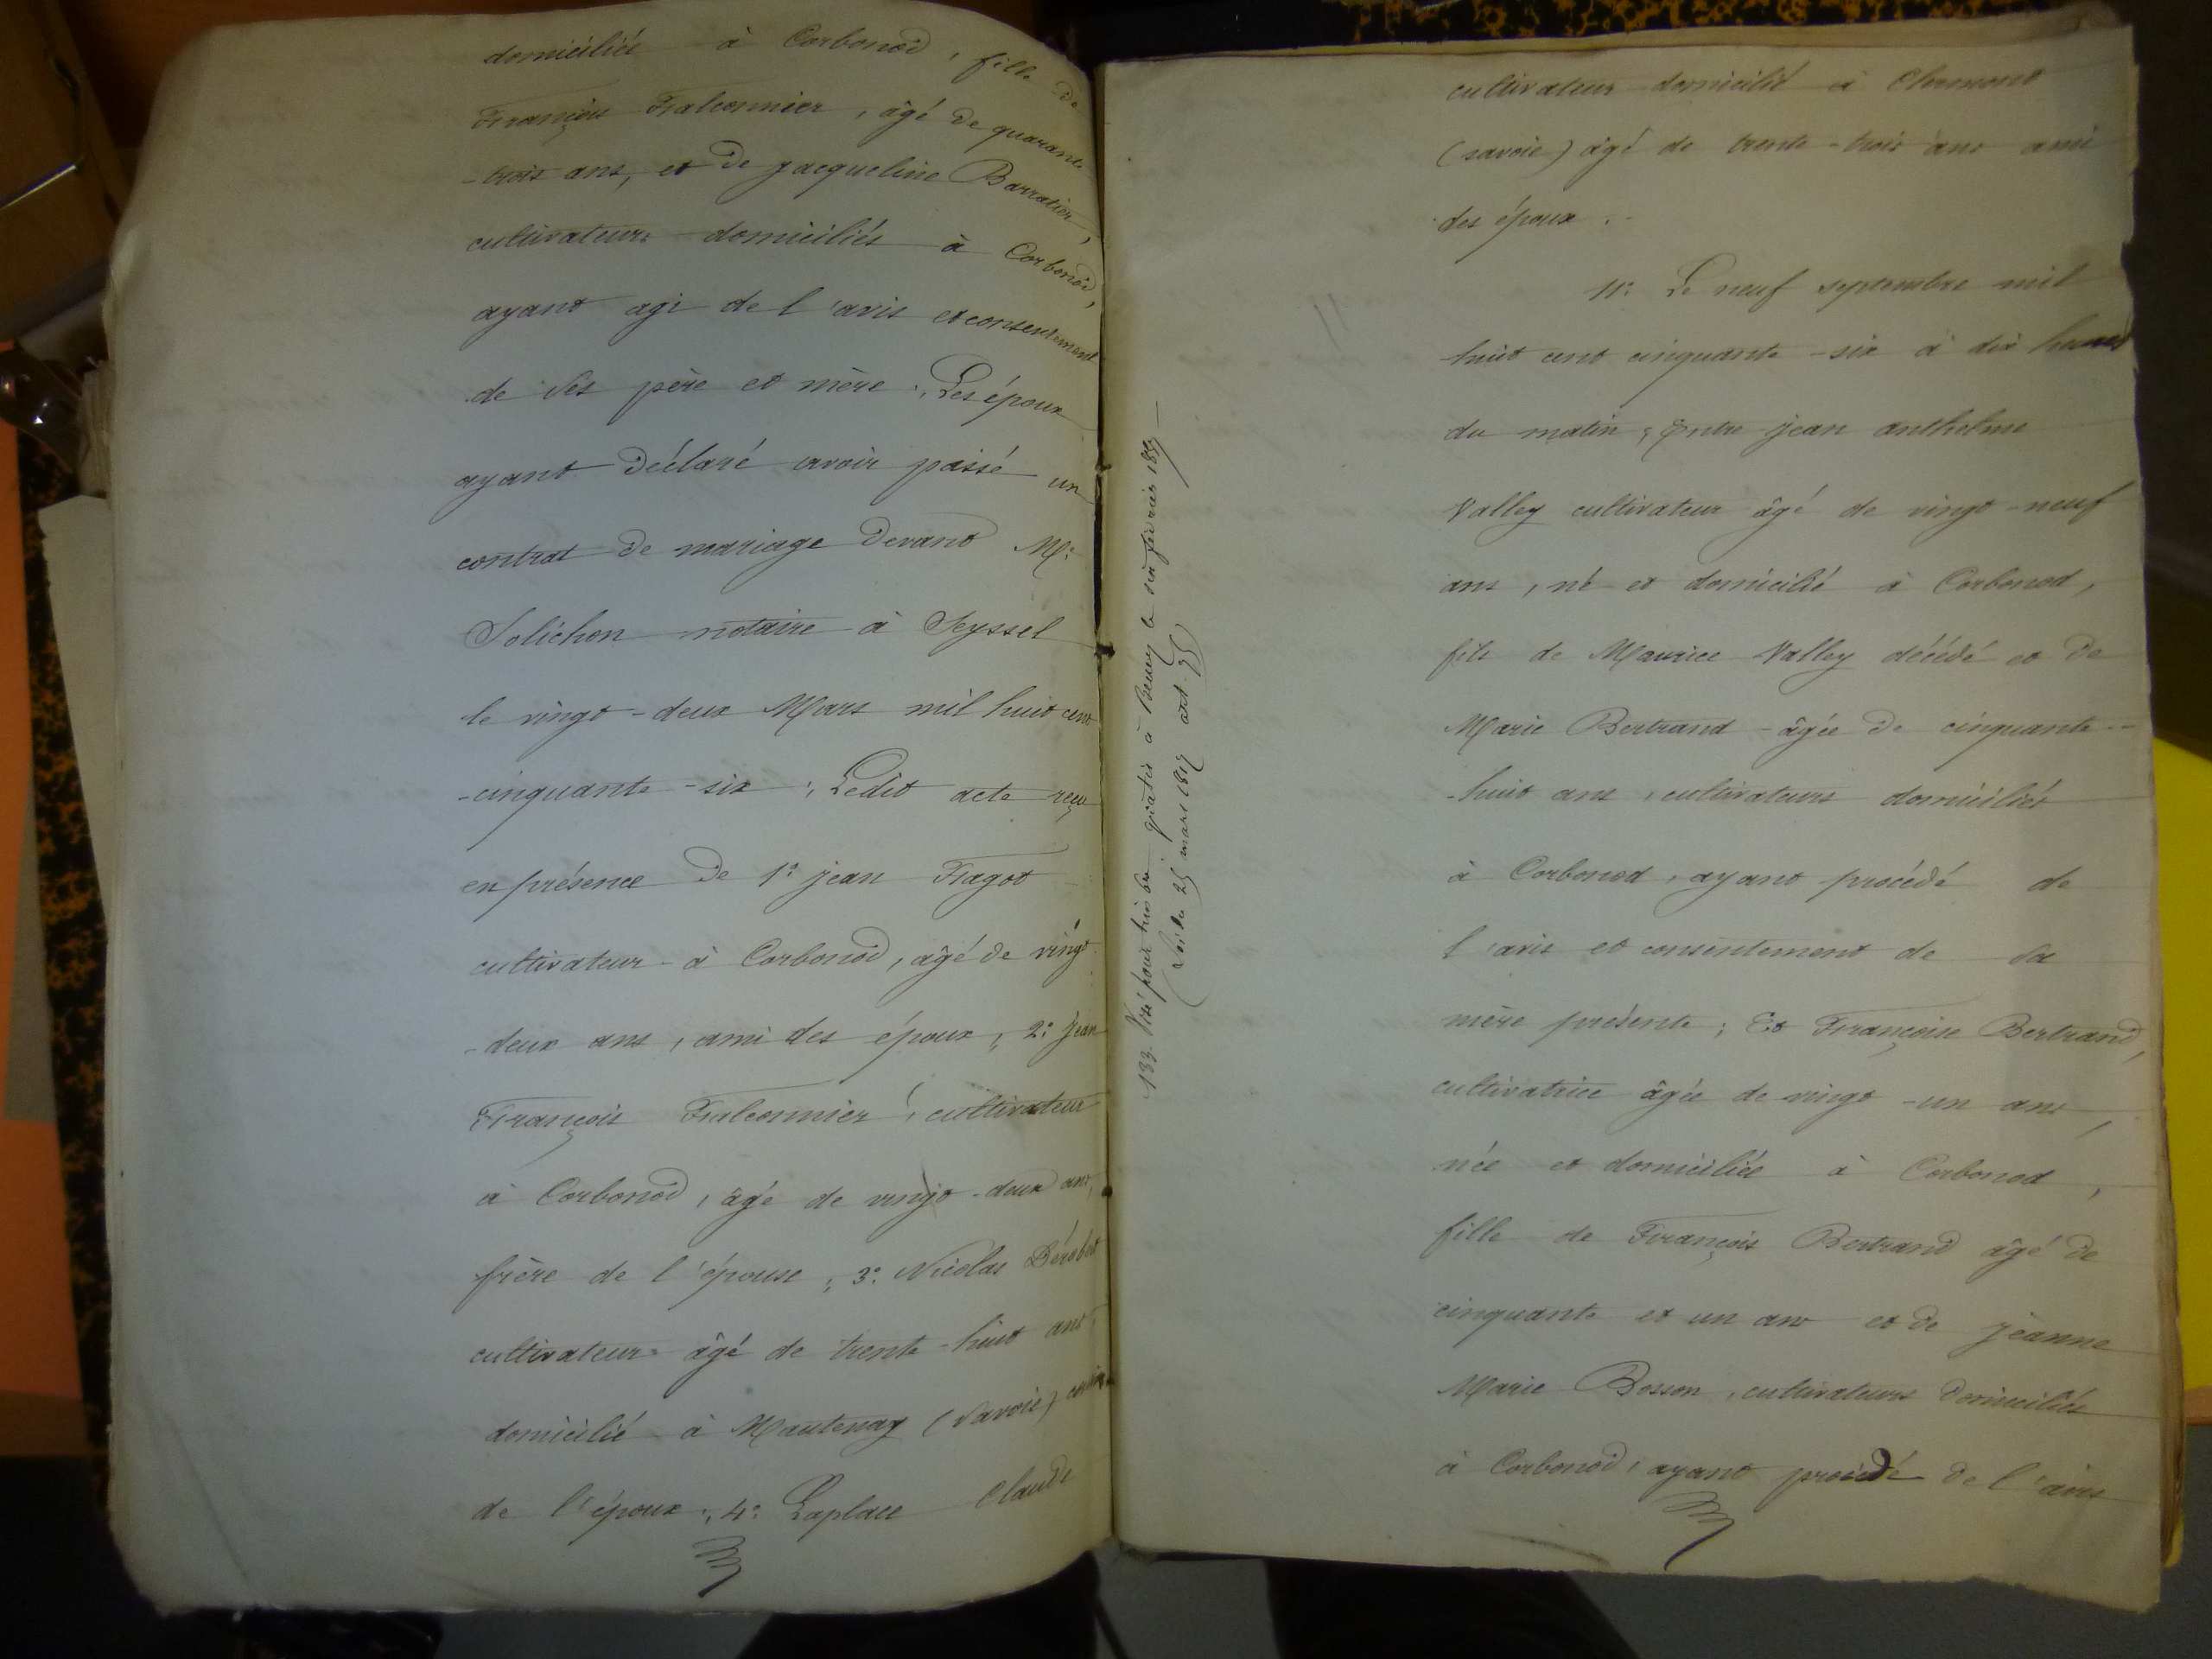 domiciliée à Corbonod, fille de
François Falconnier, âgé de quarante
-trois ans, et de jacqueline Barratier,
cultivateurs domiciliés à Corbonod,
ayant agi de l'avis et consentement
de ses père et mère ; Les époux
ayant déclaré avoir passé un
contrat de mariage devant Me
Solichon notaire à Seyssel
le vingt-deux Mars mil huit cent
-cinquante-six ; Ledit acte reçu
en présence de 1° jean Fagot
cultivateur à Corbonod, âgé de vingt
-deux ans, ami des époux ; 2° jean
François Falconnier, cultivateur
à Corbonod, âgé de vingt-deux ans,
frère de l'épouse ; 3° Nicolas
cultivateur âgé de trente-huit ans,
domicilié à Mautenay (Savoie) cousin
de l'époux ; 4° Laplace Claude
133. Visé pour timbre gratis à Belley le six février 1857
(Loi du 25 mars 1817 art. 75)
cultivateur domicilié à Clermont
(savoie) âgé de trente-trois ans ami
des époux.
11° Le neuf septembre mil
huit cent cinquante-six à dix heures
du matin ; Entre jean anthelme
Valley cultivateur âgé de vingt-neuf
ans, né et domicilié à Corbonod,
fils de Maurice Valley décédé et de
Marie Bertrand âgée de cinquante-
-huit ans, cultivateurs domiciliés
à Corbonod, ayant procédé de
l'avis et consentement de sa
mère présente ; Et Françoise Bertrand,
cultivatrice âgée de vingt-un ans,
née et domiciliée à Corbonod,
fille de François Bertrand âgé de
cinquante et un ans et de jeanne
Marie Bosson, cultivateurs domiciliés
à Corbonod, ayant procédé de l'avis